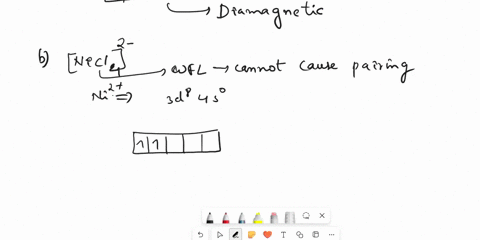 → Diamagnetic
b) [NiCl4]2- → WFL → cannot cause pairing
Ni2+ ⇒ 3d8 4s0
1 1